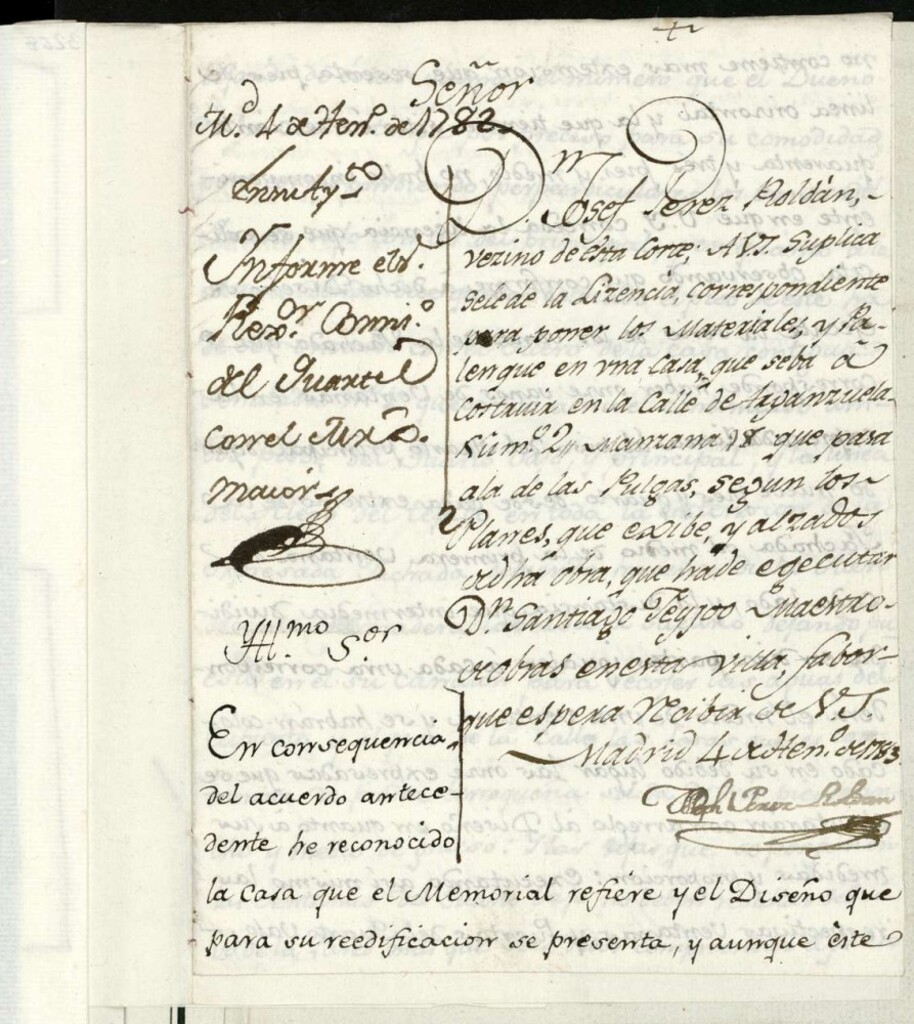 Señor
M.d 4 de Hen.º de 1783.
En su Ay.to
Informe el S.r
Rex.or Comi.º
del Quartel
con el Mro.
maior
D.n Josef Perez Roldán,
vezino de esta Corte; A V.I. Suplica
sele de la Lizencia, correspondiente
para poner los Materiales, y Pa-
lenque en vna Casa, que sebá â
costruir en la Calle de Arganzuela
Núm.º 2,, Manzana 78 que pasa
ala de las Pulgas, segun los
Planes, que exîbe, y alzados
de dha obra, que hade egecutar
D.n Santiago Feyjoo Maestro
de obras en esta villa, fabor
que espera recibir de V.I.
Madrid 4 de Hen.º de 1783.
Joseph Perez Roldan
Yll.mo S.or
En consequencia
del acuerdo antece-
dente he reconocido
la Casa que el Memorial refiere y el Diseño que
para su reedificacion se presenta, y aunque èste